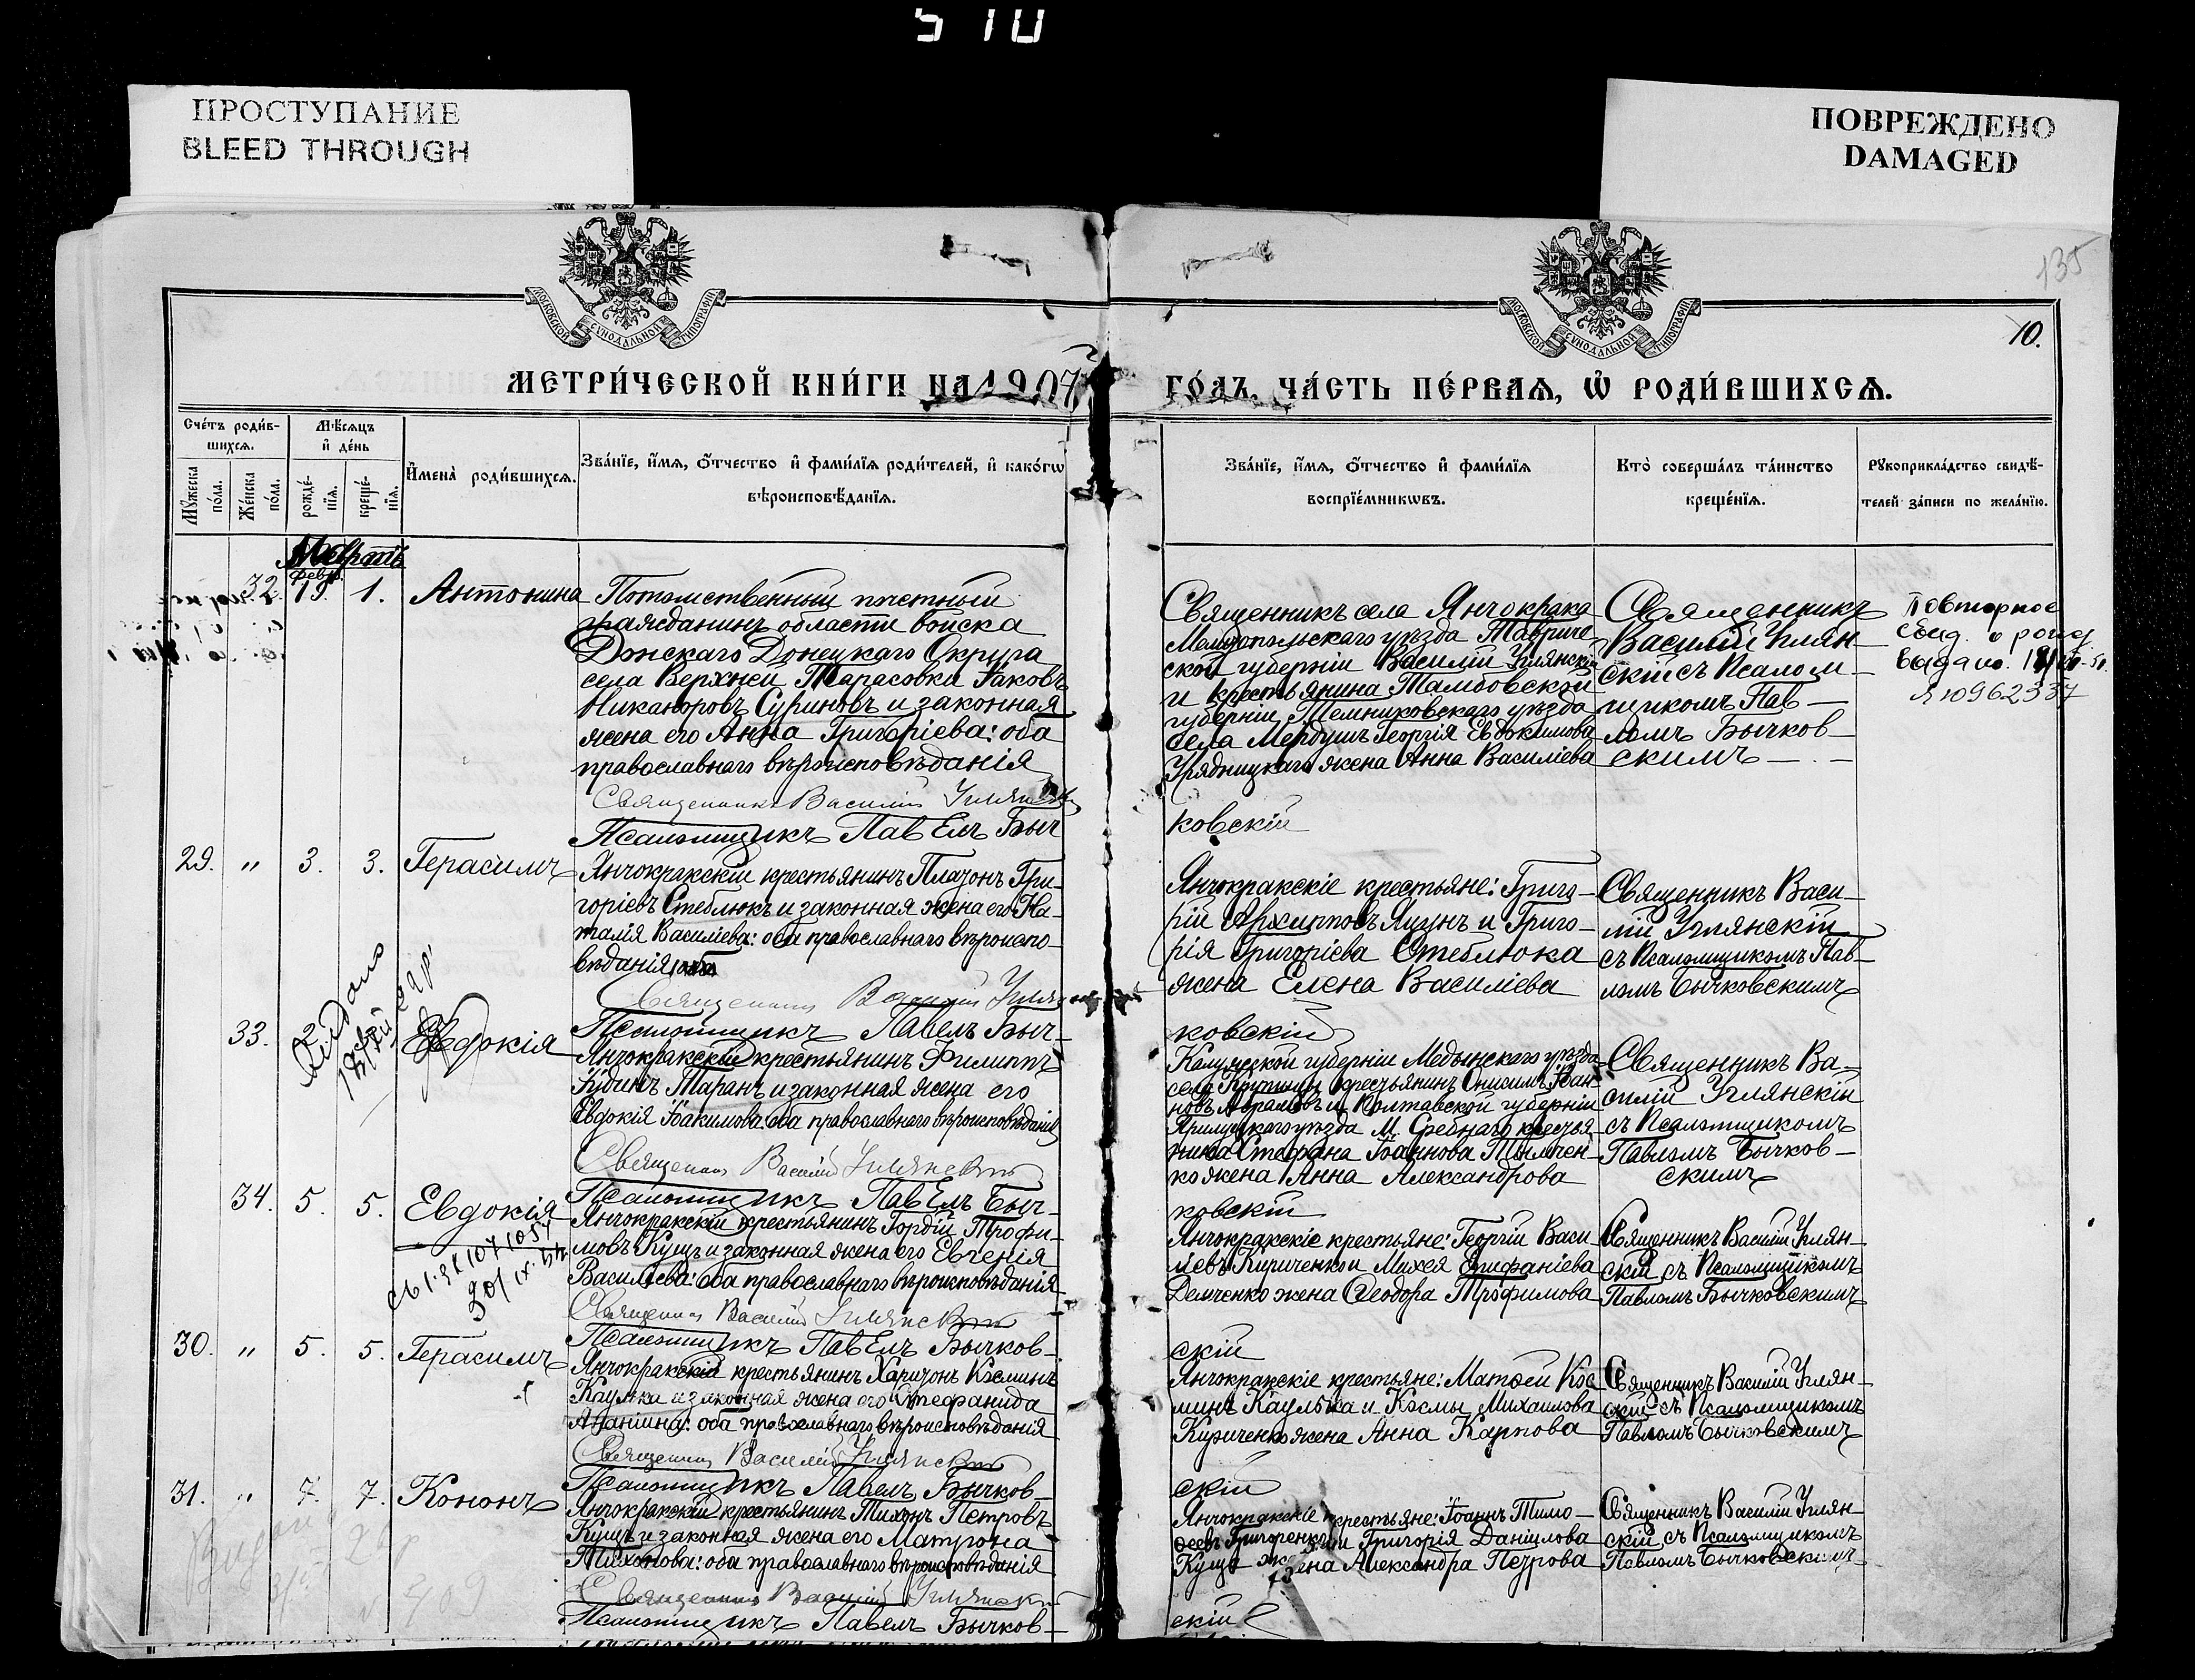 510
ПРОСТУПАНИЕ
BLEED THROUGH
ПОВРЕЖДЕНО
DAMAGED
135
10.
МОСКОВСКОЙ СѴНОДАЛЬНОЙ ТИПОГРАФІИ
МОСКОВСКОЙ СѴНОДАЛЬНОЙ ТИПОГРАФІИ
МЕТРИ́ЧЕСКОЙ КНИ́ГИ НА 1907
ГО́ДЪ, ЧА́СТЬ ПЕ́РВАЯ, Ѡ҆ РОДИ́ВШИХСЯ.
Сче́тъ роди́в-
шихся.
Мꙋ́жеска по́ла.
Же́нска по́ла.
Мѣ́сяцъ
и҆ де́нь
рожде́-
нїя.
креще́-
нїя.
И҆мена̀ роди́вшихся.
Зва́нїе, и҆́мя, ѻ҆́тчество и҆ фами́лїя роди́телей, и҆ како́гѡ
вѣроисповѣ́данїя.
Зва́нїе, и҆́мя, ѻ҆́тчество и҆ фами́лїя
воспрїе́мникѡвъ.
Кто̀ соверша́лъ та́инство
креще́нїя.
Рꙋкоприкла́дство свидѣ́-
телей за́писи по жела́нїю.
Мартъ
февр.
32. 19. 1. Антонина
Потомственный почетный
гражданинъ области войска
Донскаго Донецкаго Округа
села Верхней Тарасовки Іаковъ
Никаноровъ Суриновъ и законная
жена его Анна Григоріева: оба
православнаго вѣроисповѣданія
Священникъ Василій Углянскій
Псаломщикъ Павелъ Быч
Священникъ села Янчокрака
Мелитопольскаго уѣзда Тавриче
ской губерніи Василій Углянскій
и крестьянина Тамбовской
губерніи Темниковскаго уѣзда
села Мердушъ Георгія Евдокимова
Урядницкаго жена Анна Василіева
ковскій
Священникъ
Василій Углян-
скій съ Псалом-
щикомъ Пав-
ломъ Бычков-
скимъ
Повторное
свид. о рожд
выдано.
29. " 3. 3. Герасимъ
Янчокракскій крестьянинъ Платонъ Гри-
горіевъ Стеблюкъ и законная жена его На-
талія Василіева: оба православнаго вѣроиспо-
вѣданія
Священникъ Василій Углян
Псаломщикъ Павелъ Быч-
Янчокракскіе крестьяне: Григо-
рій Архиповъ Яцунъ и Григо-
рія Григоріева Стеблюка
жена Елена Василіева
ковскій
Священникъ Васи-
лій Углянскій
съ Псаломщикомъ Пав-
ломъ Бычковскимъ
33. Евдокія
Видано
Янчокракскій крестьянинъ Филиппъ
Іудинъ Таранъ и законная жена его
Евдокія Іоакимова: оба православнаго вѣроисповѣданія
Священникъ Василій Углянскій
Псаломщикъ Павелъ Быч-
Калужской губерніи Медынскаго уѣзда
села крестьянинъ Онисимъ Іоан-
новъ Абрамовъ и Полтавской губерніи
Прилуцкаго уѣзда М. Сребнаго крестья-
нина Стефана Іоаннова Тымчен-
ко жена Анна Александрова
ковскій
Священникъ Ва-
силій Углянскій
съ Псаломщикомъ
Павломъ Бычков-
скимъ
34. 5. 5. Евдокія
Янчокракскій крестьянинъ Гордій Трофи-
мовъ Кущъ и законная жена его Евгенія
Василіева: оба православнаго вѣроисповѣданія
Священникъ Василій Углянскій
Псаломщикъ Павелъ Бычков-
Янчокракскіе крестьяне: Георгій Васи
ліевъ Кириченко и Михея Епифаніева
Демченко жена Ѳеодора Трофимова
скій
Священникъ Василій Углян-
скій съ Псаломщикомъ
Павломъ Бычковскимъ
30. " 5. 5. Герасимъ
Янчокракскій крестьянинъ Харитонъ Косминъ
Каулька и законная жена его Стефанида
Ананіина: оба православнаго вѣроисповѣданія
Священникъ Василій Углянскій
Псаломщикъ Павелъ Бычков-
Янчокракскіе крестьяне: Матѳей Кос
минъ Каулька и Космы Михаилова
Кириченко жена Анна Карпова
скій
Священникъ Василій Углян-
скій съ Псаломщикомъ
Павломъ Бычковскимъ
31. " 7. 7. Кононъ
Янчокракскій крестьянинъ Тихонъ Петровъ
Кущъ и законная жена его Матрона
Тихонова: оба православнаго вѣроисповѣданія
Священникъ Василій Углянскій
Псаломщикъ Павелъ Бычков-
Янчокракскіе крестьяне: Іоаннъ Тимо-
ѳеевъ Григоренко и Григорія Даніилова
Куща жена Александра Петрова
скій
Священникъ Василій Углян-
скій съ Псаломщикомъ
Павломъ Бычковскимъ